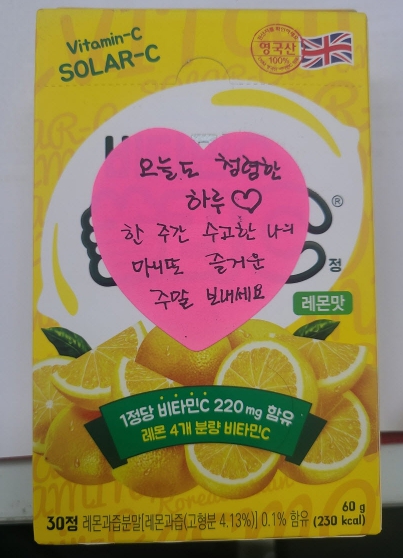 Vitamin-C
SOLAR-C
영국산
100%
오늘도 청렴한
하루♡
한 주간 수고한 나의
마니또 즐거운
주말 보내세요
®
정
레몬맛
1정당 비타민C 220 mg 함유
레몬 4개 분량 비타민C
60 g
30정 레몬과즙분말[레몬과즙(고형분 4.13%)] 0.1% 함유 (230 kcal)